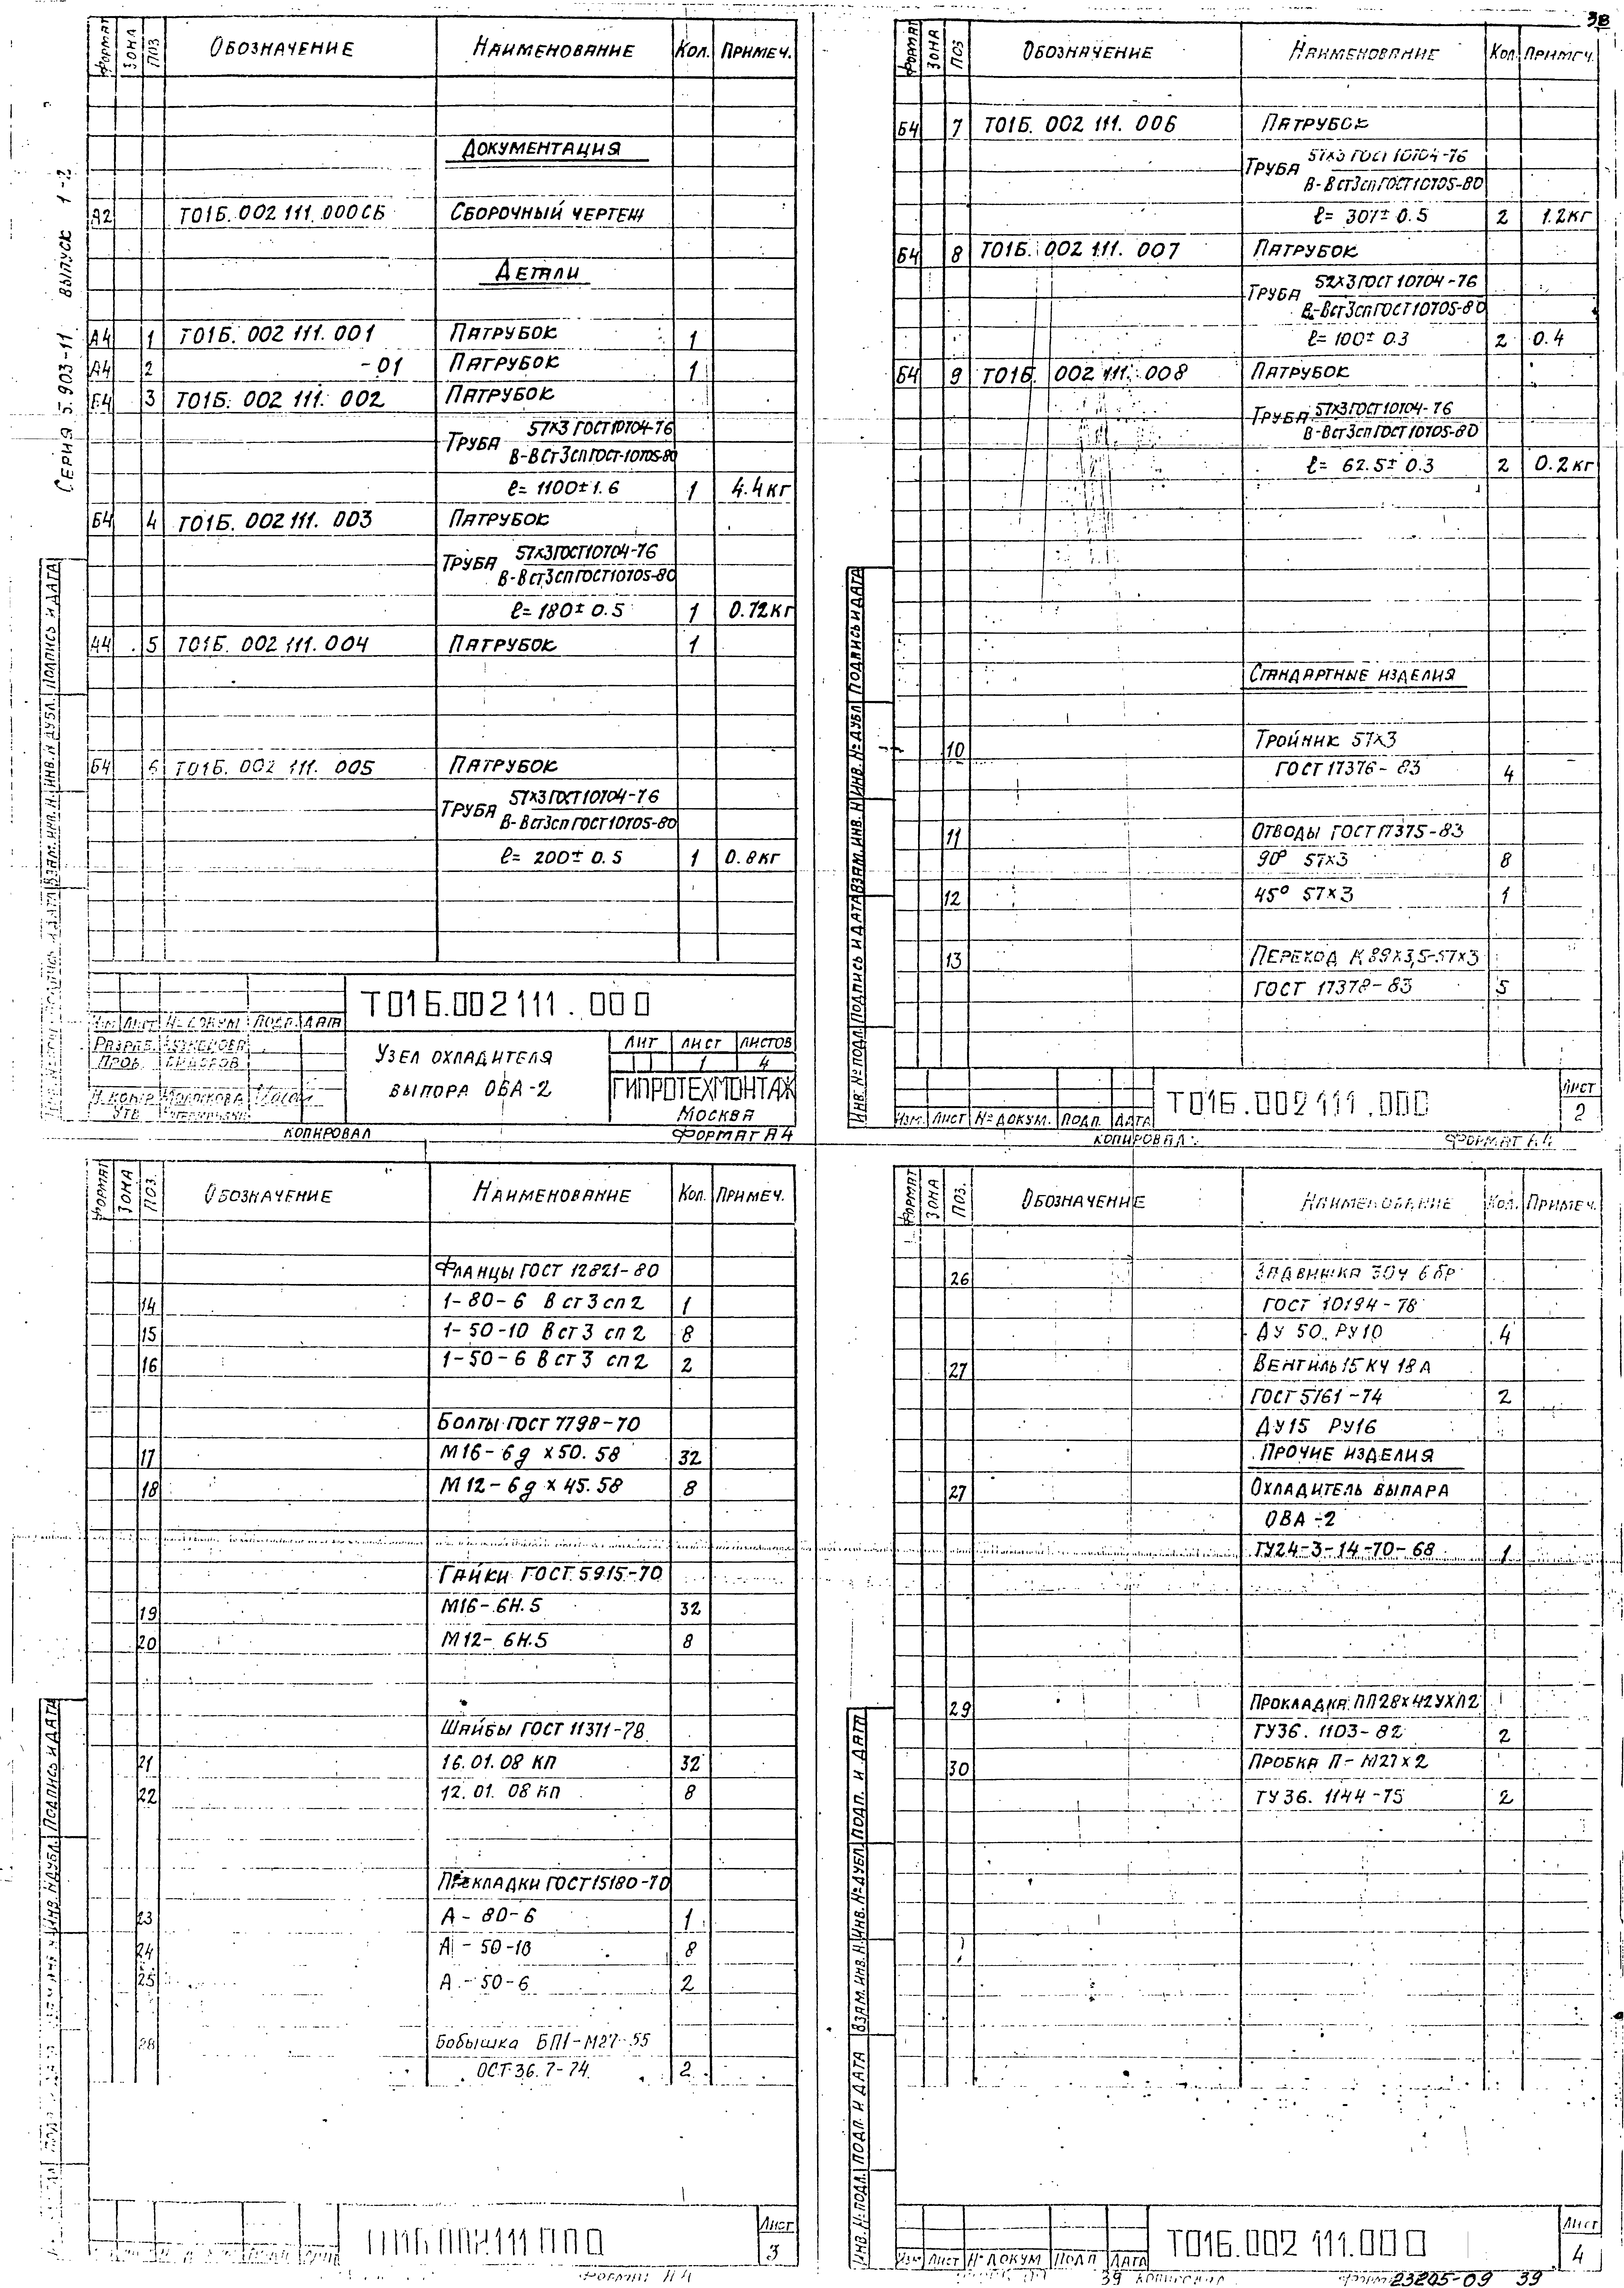 38
СЕРИЯ 5.903-11 ВЫПУСК 1-2
ФОРМАТ ЗОНА ПОЗ ОБОЗНАЧЕНИЕ НАИМЕНОВАНИЕ КОЛ. ПРИМЕЧ.
ДОКУМЕНТАЦИЯ
А2 Т01Б. 002 111. 000СБ СБОРОЧНЫЙ ЧЕРТЕЖ
ДЕТАЛИ
А4 1 Т01Б. 002 111. 001 ПАТРУБОК 1
А4 2 -01 ПАТРУБОК 1
Б4 3 Т01Б. 002 111. 002 ПАТРУБОК
ТРУБА 57х3 ГОСТ 10704-76
В-ВСт3сп ГОСТ-10705-80
ℓ= 1100±1.6 1 4.4кг
Б4 4 Т01Б. 002 111. 003 ПАТРУБОК
ТРУБА 57х3 ГОСТ 10704-76
В-ВСт3сп ГОСТ 10705-80
ℓ= 180± 0.5 1 0.72кг
А4 5 Т01Б. 002 111. 004 ПАТРУБОК 1
Б4 6 Т01Б. 002 111. 005 ПАТРУБОК
ТРУБА 57х3 ГОСТ 10704-76
В-ВСт3сп ГОСТ 10705-80
ℓ= 200± 0.5 1 0.8кг
Т01Б.002111.000
ИЗМ ЛИСТ № ДОКУМ ПОДП. ДАТА
РАЗРАБ.
ПРОВ.
Н. КОНТР.
УТВ
УЗЕЛ ОХЛАДИТЕЛЯ
ВЫПОРА ОВА-2
ЛИТ ЛИСТ ЛИСТОВ
1 4
ГИПРОТЕХМОНТАЖ
МОСКВА
КОПИРОВАЛ ФОРМАТ А4
ПОДПИСЬ И ДАТА
ИНВ. N ДУБЛ.
ВЗАМ. ИНВ. N
ФОРМАТ ЗОНА ПОЗ ОБОЗНАЧЕНИЕ НАИМЕНОВАНИЕ КОЛ. ПРИМЕЧ.
Б4 7 Т01Б. 002 111. 006 ПАТРУБОК
ТРУБА 57х3 ГОСТ 10704-76
В-ВСт3сп ГОСТ 10705-80
ℓ= 307± 0.5 2 1.2кг
Б4 8 Т01Б. 002 111. 007 ПАТРУБОК
ТРУБА 52х3 ГОСТ 10704-76
В-ВСт3сп ГОСТ 10705-80
ℓ= 100± 0.3 2 0.4
Б4 9 Т01Б. 002 111. 008 ПАТРУБОК
ТРУБА 57х3 ГОСТ 10704-76
В-ВСт3сп ГОСТ 10705-80
ℓ= 62.5± 0.3 2 0.2кг
СТАНДАРТНЫЕ ИЗДЕЛИЯ
10 ТРОЙНИК 57х3
ГОСТ 17376-83 4
11 ОТВОДЫ ГОСТ 17375-83
90° 57х3 8
12 45° 57х3 1
13 ПЕРЕХОД К 89х3,5-57х3
ГОСТ 17378-83 5
ИНВ. № ПОДЛ. ПОДПИСЬ И ДАТА ВЗАМ. ИНВ. N ИНВ. № ДУБЛ ПОДПИСЬ И ДАТА
ИЗМ. ЛИСТ № ДОКУМ. ПОДП. ДАТА
Т01Б.002111.000
ЛИСТ
2
КОПИРОВАЛ: ФОРМАТ А4
ФОРМАТ ЗОНА ПОЗ. ОБОЗНАЧЕНИЕ НАИМЕНОВАНИЕ КОЛ. ПРИМЕЧ.
ФЛАНЦЫ ГОСТ 12821-80
14 1-80-6 В ст 3 сп 2 1
15 1-50-10 В ст 3 сп 2 8
16 1-50-6 В ст 3 сп 2 2
БОЛТЫ ГОСТ 7798-70
17 М16-6g х 50. 58 32
18 М12-6g х 45. 58 8
ГАЙКИ ГОСТ 5915-70
19 М16-6Н.5 32
20 М12-6Н.5 8
ШАЙБЫ ГОСТ 11371-78
21 16.01.08 КП 32
22 12.01.08 КП 8
ПРОКЛАДКИ ГОСТ 15180-70
23 А-80-6 1
24 А-50-10 8
25 А-50-6 2
28 БОБЫШКА БП1-М27-55
ОСТ 36.7-74 2
ПОДПИСЬ И ДАТА
ИНВ. N ДУБЛ.
Т01Б.002111.000
ЛИСТ
3
ФОРМАТ А4
ФОРМАТ ЗОНА ПОЗ. ОБОЗНАЧЕНИЕ НАИМЕНОВАНИЕ КОЛ. ПРИМЕЧ.
26 ЗАДВИЖКА 30ч 6 бр
ГОСТ 10194-78
ДУ 50 РУ10 4
27 ВЕНТИЛЬ 15 КЧ 18А
ГОСТ 5761-74 2
ДУ15 РУ16
ПРОЧИЕ ИЗДЕЛИЯ
27 ОХЛАДИТЕЛЬ ВЫПАРА
ОВА-2
ТУ24-3-14-70-68 1
29 ПРОКЛАДКА ПП28х42УХЛ2
ТУ36. 1103-82 2
30 ПРОБКА П-М27х2
ТУ 36. 1144-75 2
ИНВ. № ПОДЛ. ПОДП. И ДАТА ВЗАМ. ИНВ. N ИНВ. № ДУБЛ ПОДП. И ДАТА
ИЗМ ЛИСТ № ДОКУМ ПОДП ДАТА
Т01Б.002 111.000
ЛИСТ
4
39 КОПИРОВАЛ 23205-09 39